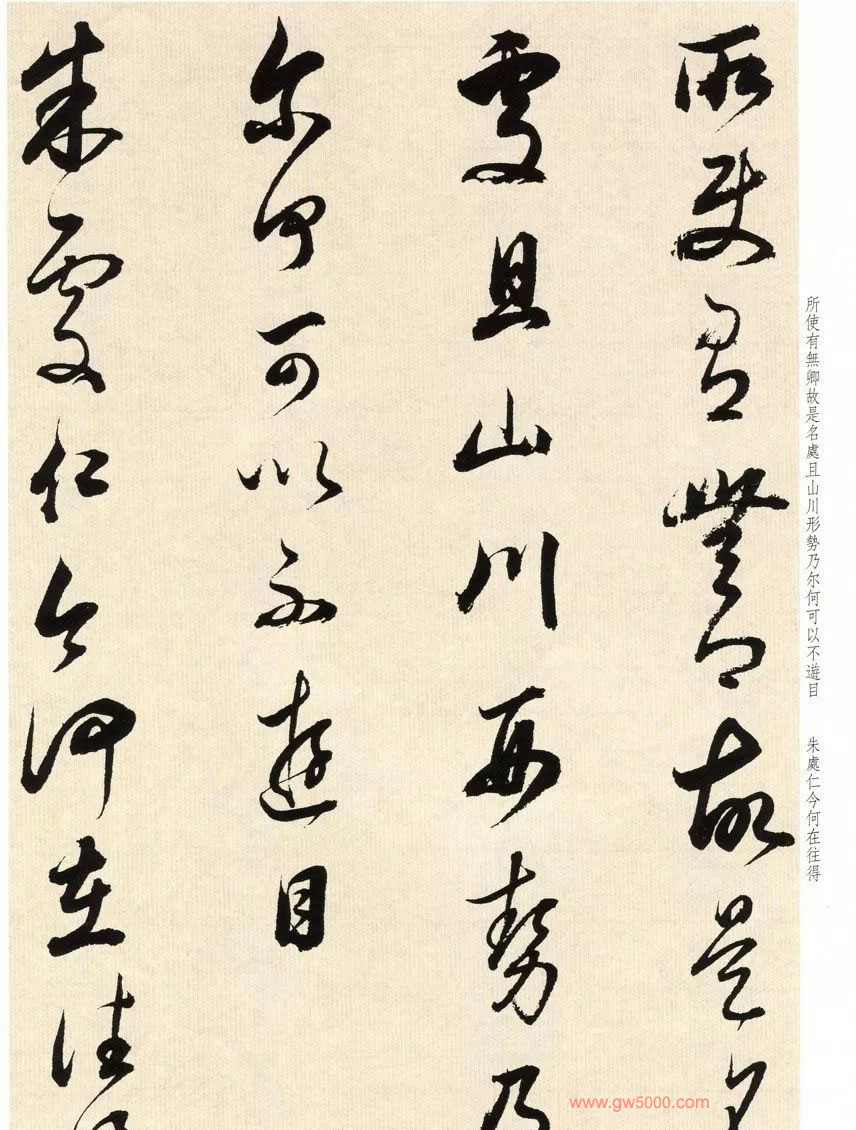 所使有無卿故是名
處且山川形勢乃
尔何可以不遊目
朱處仁今何在往
所使有無卿故是名處且山川形勢乃尔何可以不遊目
朱處仁今何在往得
www.gw5000.com